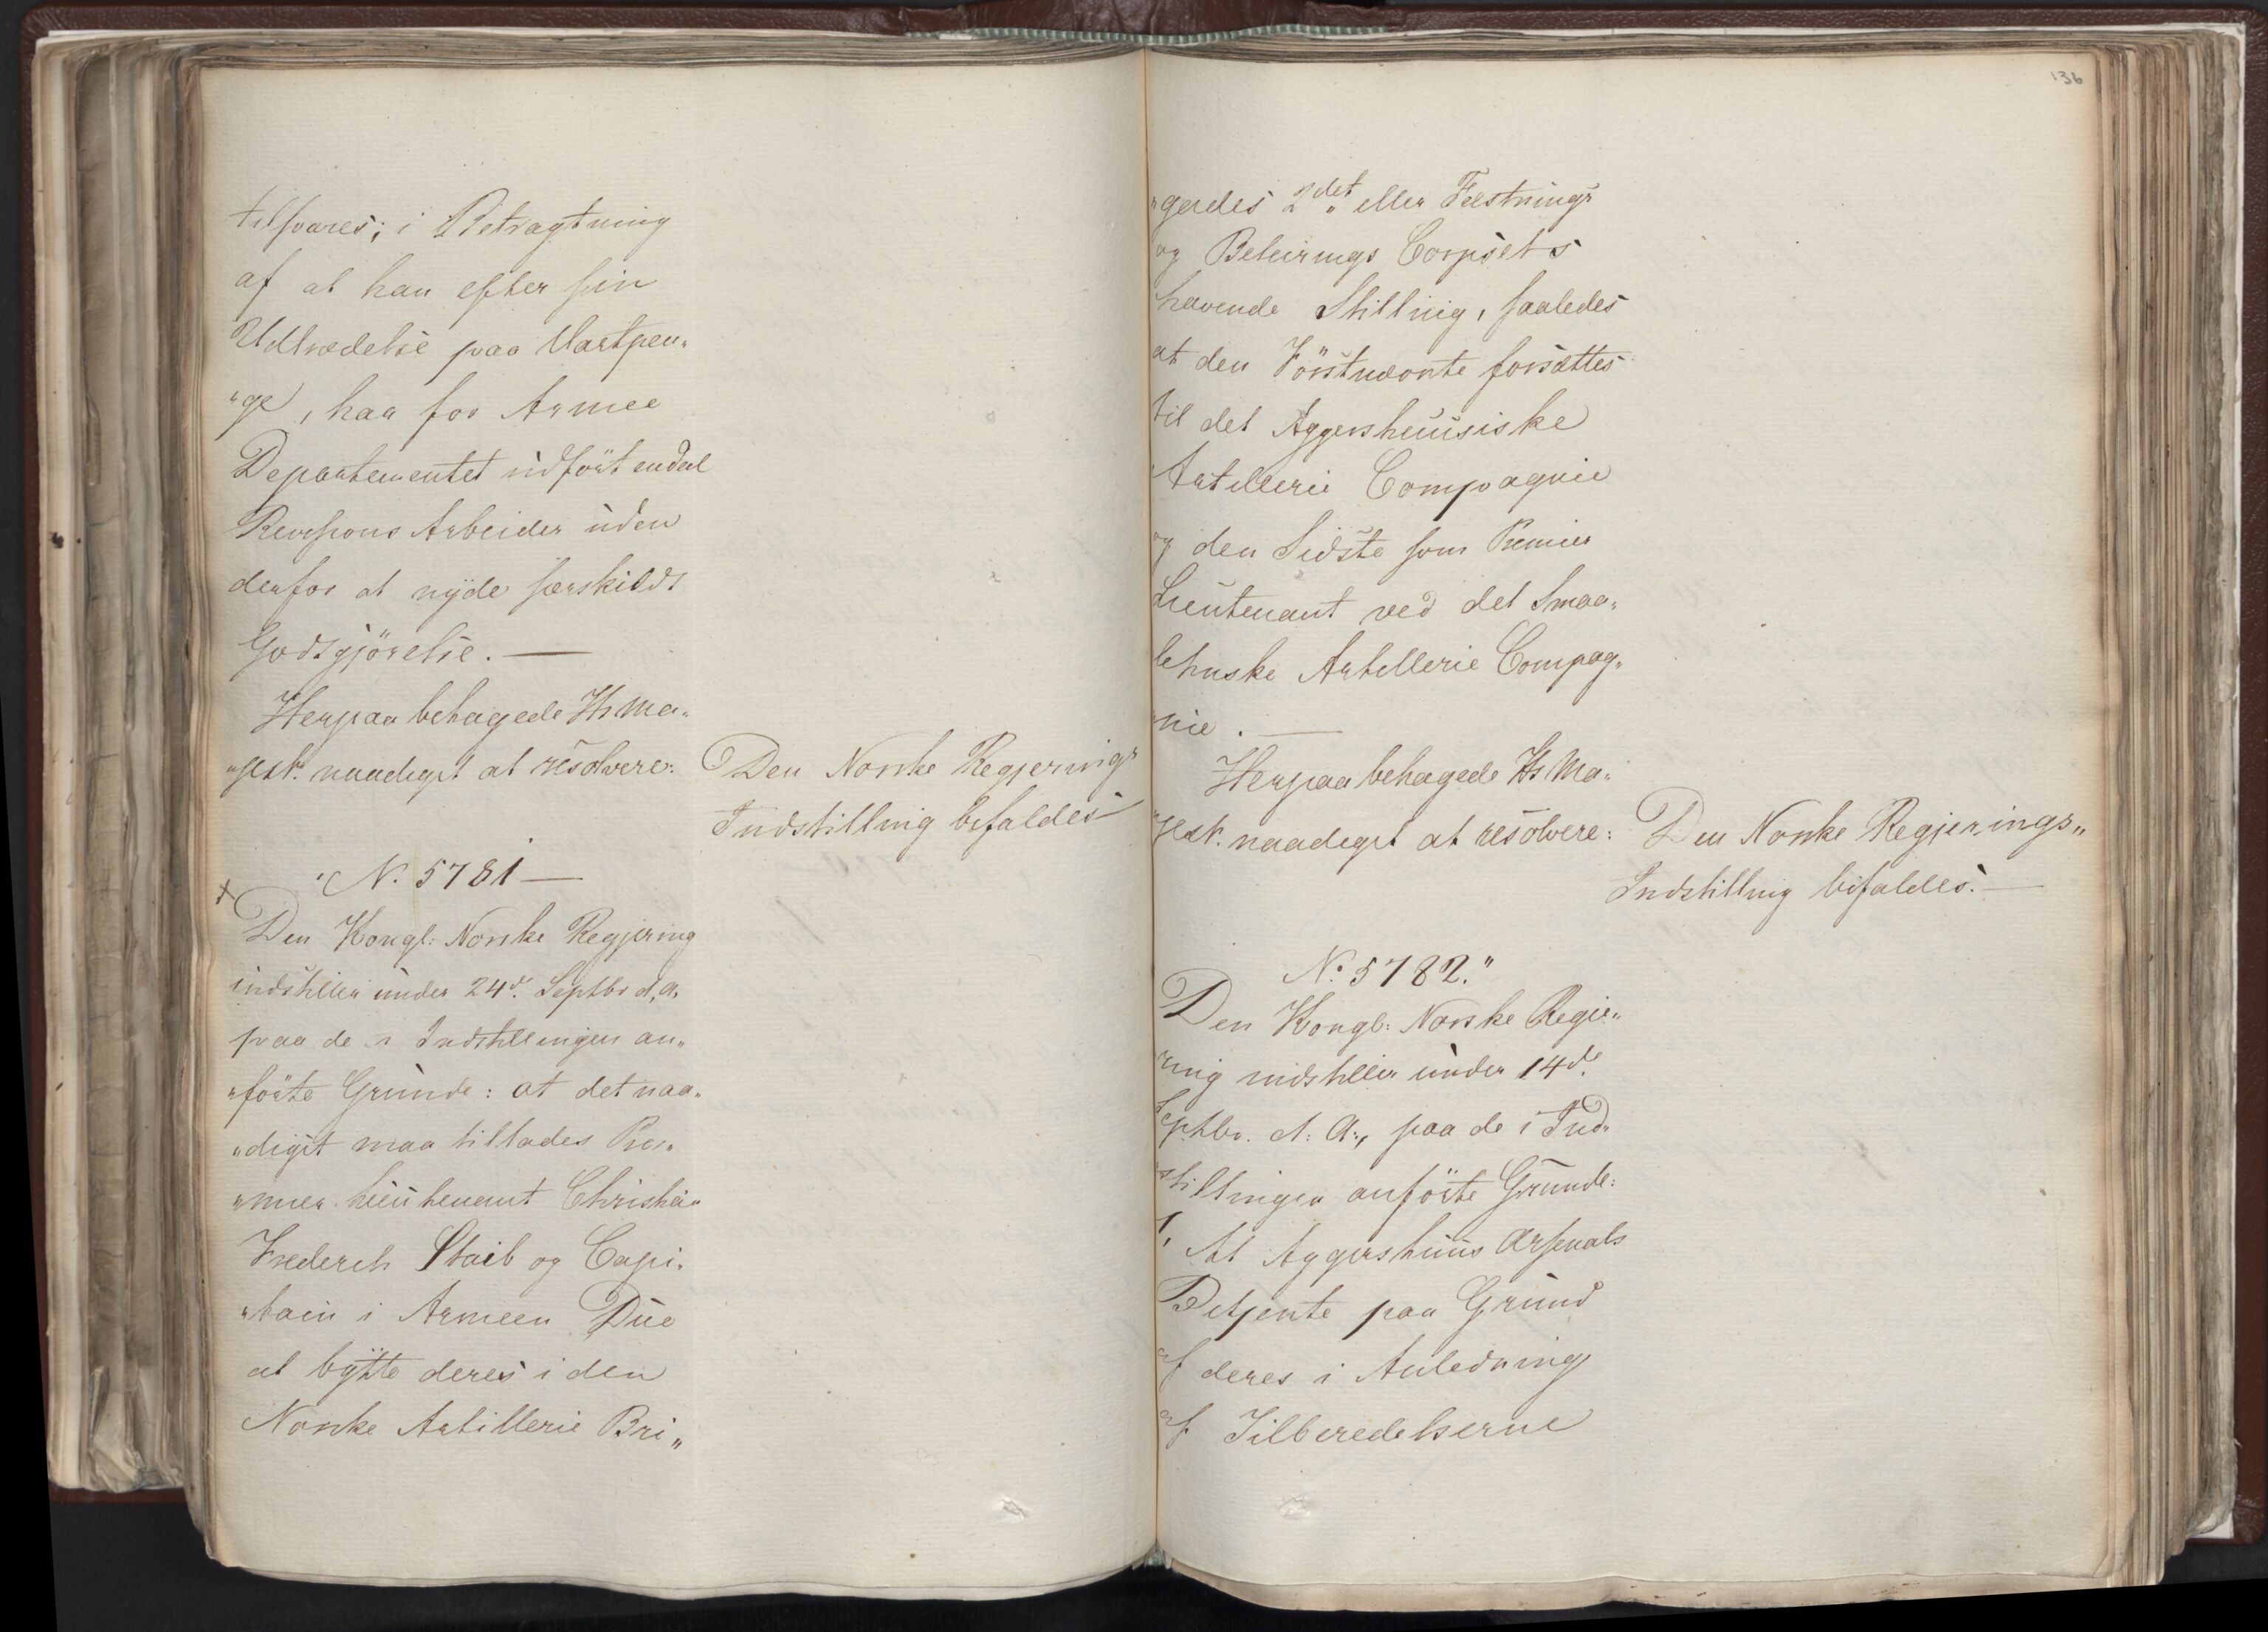 tilsvares; i Betragtning
af at han efter sin
Udtrædelse paa Vartpen„
„ge, har for Armee
Departementet udført endeel
Revisions Arbeider uden
derfor at nyde særskildt
Godtgjörelse. —
Herpaa behagede Hs Ma„
„jest. naadigst at resolvere:
Den Norske Regjerings
Indstilling bifaldes
N. 5781 —
Den Kongl: Norske Regjering
indstiller under 24d. Septbr d. a.
paa de i Indstillingen an„
„förte Grunde: at det naa„
„digst maa tillades Pre„
„mier Lieutenant Christia„
Frederch Staib og Capi„
„tain i Armeen Due
at bytte deres i den
Norske Artillerie Bri„
136
„gerdes 2det eller Fæstnings
og Beleirings Corpsets
havende Stilling, saaledes
at den Förstnævnte forsættes
til det Aggershuusiske
Artillerie Compagnie
og den Sidste som Premier
Lieutenant ved det Smaa„
lehnske Artillerie Compag„
„nie. —
Herpaa behagede Hs Ma„
„jest. naadigst at resolvere:
Den Norske Regjerings„
Indstilling bifaldes. —
No. 5782."
Den Kongl: Norske Regie„
ring indstiller under 14d.
Septbr. d: A:, paa de i Ind„
„stillingen anförte Grunde:
1, At Aggershuus Arsenals
Betjente paa Grund
af deres i Anledning
af Tilberedelserne